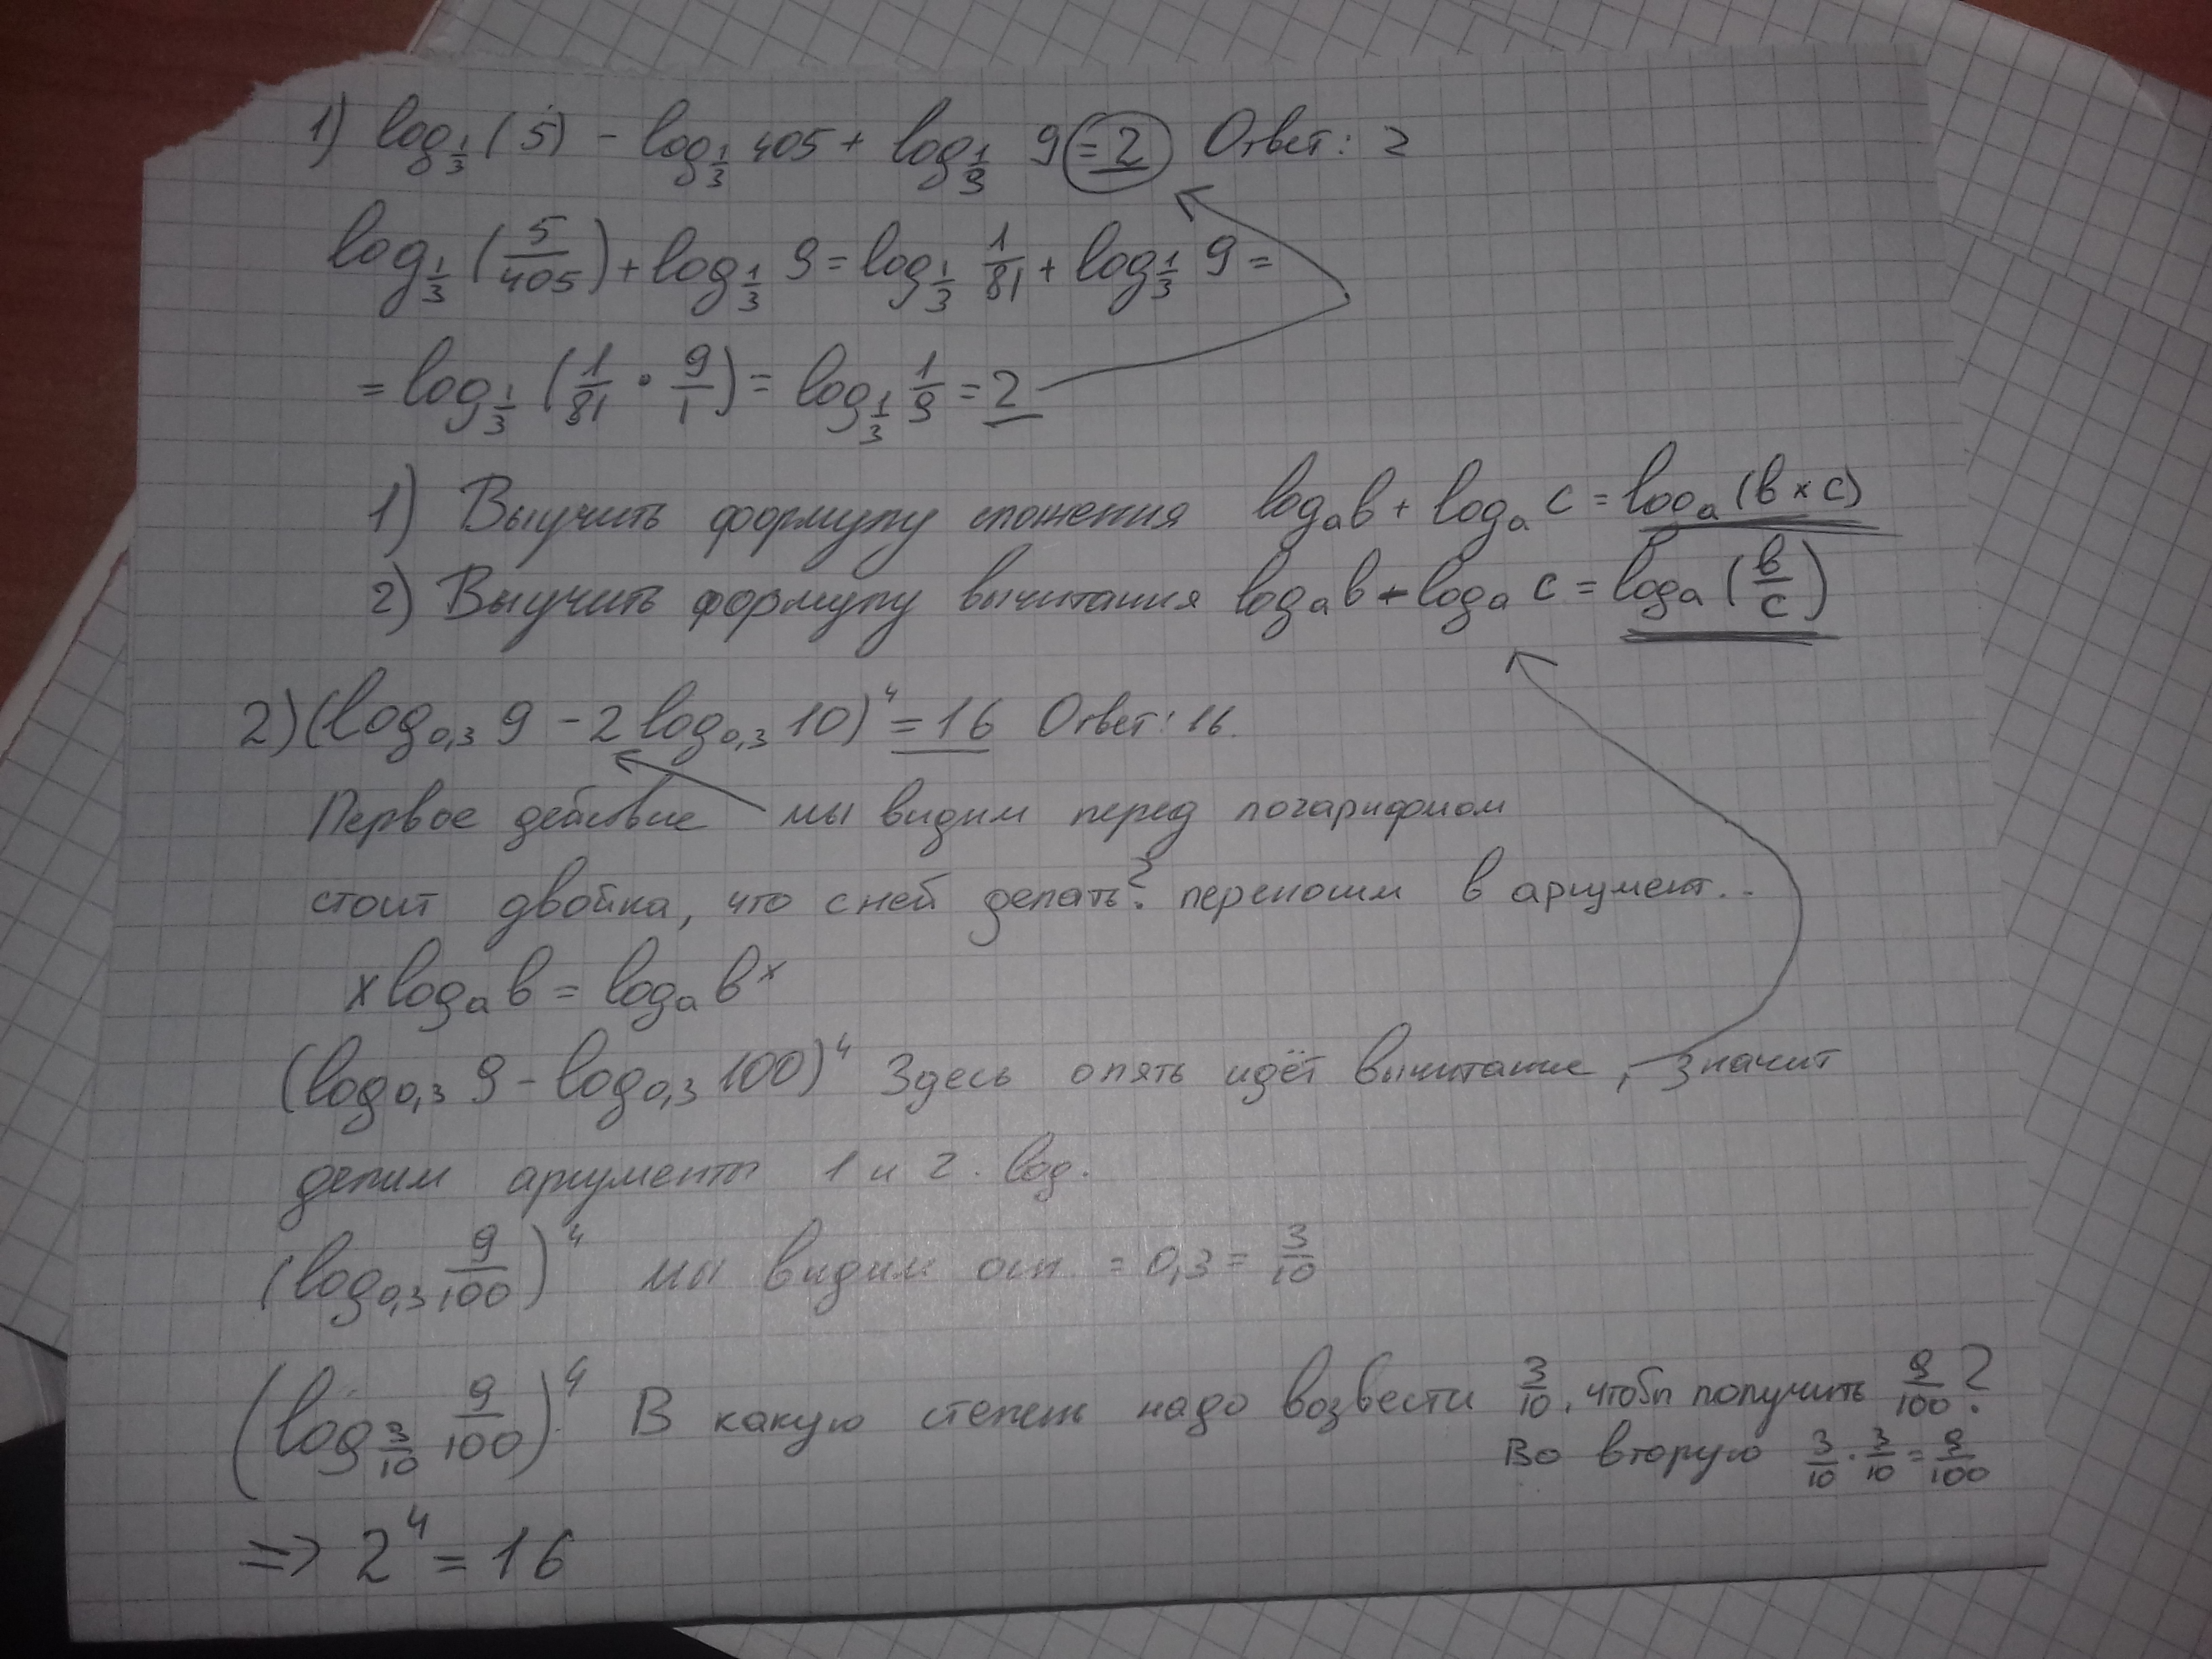 1) log_{1/3} (5) - log_{1/3} 405 + log_{1/3} 9 = 2 Ответ: 2
log_{1/3} (5/405) + log_{1/3} 9 = log_{1/3} 1/81 + log_{1/3} 9 =
= log_{1/3} (1/81 · 9/1) = log_{1/3} 1/9 = 2
1) Выучить формулу сложения log_a b + log_a c = log_a (b × c)
2) Выучить формулу вычитания log_a b - log_a c = log_a (b/c)
2) (log_{0,3} 9 - 2 log_{0,3} 10)^4 = 16 Ответ: 16.
Первое действие мы видим перед логарифмом
стоит двойка, что с ней делать? переносим в аргумент..
x log_a b = log_a b^x
(log_{0,3} 9 - log_{0,3} 100)^4 Здесь опять идёт вычитание, значит
делим аргументы 1 и 2. log.
(log_{0,3} 9/100)^4 мы видим осн = 0,3 = 3/10
(log_{3/10} 9/100)^4 В какую степень надо возвести 3/10, чтобы получить 9/100?
Во вторую 3/10 · 3/10 = 9/100
=> 2^4 = 16